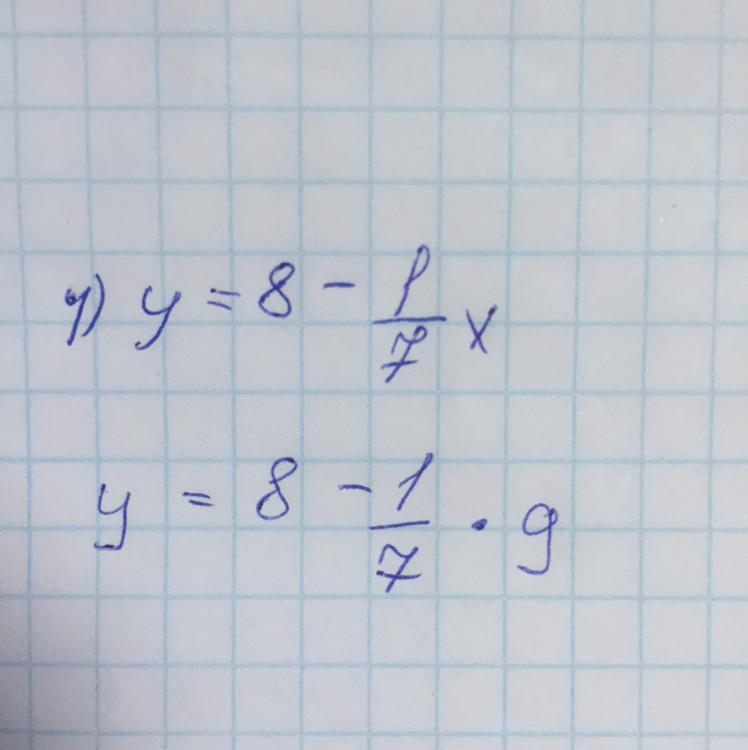 1) y = 8 - 1/7 x
y = 8 - 1/7 · 9